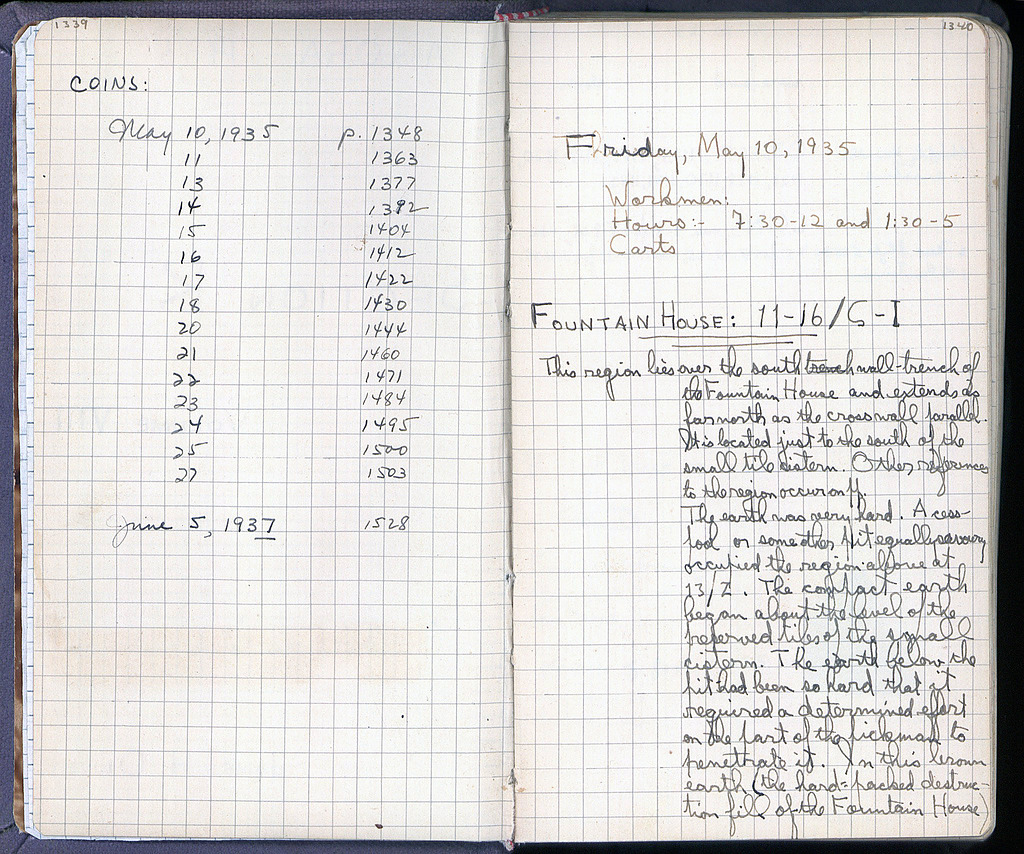 1339
COINS:
May 10, 1935 p. 1348
11 1363
13 1377
14 1392
15 1404
16 1412
17 1422
18 1430
20 1444
21 1460
22 1471
23 1484
24 1495
25 1500
27 1503
June 5, 1937 1528
1340
Friday, May 10, 1935
Workmen:
Hours:- 7:30-12 and 1:30-5
Carts
FOUNTAIN HOUSE: 11-16/ -I
This region lies over the south trench wall-trench of
the Fountain House and extends as
far north as the cross wall parallel.
It is located just to the south of the
small tile cistern. Other references
to the region occur on pp.
The earth was very hard. A cess-
pool or some other pit equally savoury
occupied the region above at
13/Z. The compact earth
began about the level of the
preserved tiles of the small
cistern. The earth below the
pit had been so hard that it
required a determined effort
on the part of the pickman to
penetrate it. In this brown
earth (the hard-packed destruc-
tion fill of the Fountain House)